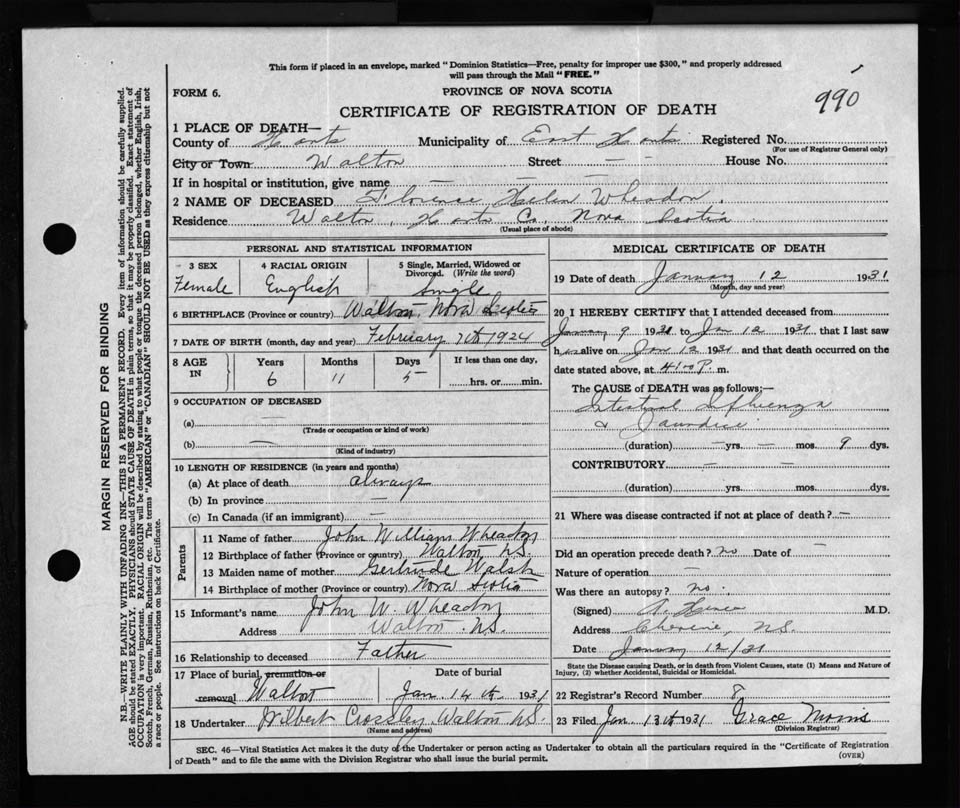 This form if placed in an envelope, marked "Dominion Statistics—Free, penalty for improper use $300," and properly addressed
will pass through the Mail "FREE."
FORM 6.
PROVINCE OF NOVA SCOTIA
990
CERTIFICATE OF REGISTRATION OF DEATH
1 PLACE OF DEATH—
County of Hants Municipality of East Hants Registered No.
(For use of Registrar General only)
City or Town Walton Street — — House No.
If in hospital or institution, give name — —
2 NAME OF DECEASED Florence Helen Wheadon
Residence Walton, Hants Co. Nova Scotia
(Usual place of abode)
PERSONAL AND STATISTICAL INFORMATION
3 SEX 4 RACIAL ORIGIN 5 Single, Married, Widowed or
Divorced. (Write the word)
Female English Single
6 BIRTHPLACE (Province or country) Walton, Nova Scotia
7 DATE OF BIRTH (month, day and year) February 7th 1924
8 AGE IN Years Months Days If less than one day,
6 11 5 hrs. or min.
9 OCCUPATION OF DECEASED
(a) —
(Trade or occupation or kind of work)
(b) —
(Kind of industry)
10 LENGTH OF RESIDENCE (in years and months)
(a) At place of death always
(b) In province —
(c) In Canada (if an immigrant) —
Parents
11 Name of father John William Wheadon
12 Birthplace of father (Province or country) Walton N.S.
13 Maiden name of mother Gertrude Walsh
14 Birthplace of mother (Province or country) Nova Scotia
15 Informant's name John W. Wheadon
Address Walton N.S.
16 Relationship to deceased Father
17 Place of burial, cremation or Date of burial
removal Walton Jan. 14th 1931
18 Undertaker Wilbert Crossley Walton N.S.
(Name and address)
MEDICAL CERTIFICATE OF DEATH
19 Date of death January 12 1931
(Month, day and year)
20 I HEREBY CERTIFY that I attended deceased from
January 9 1931 to Jan 12 1931 that I last saw
her alive on Jan 12 1931 and that death occurred on the
date stated above, at 4:00 P. m.
The CAUSE of DEATH was as follows:—
Intestinal Influenza
& Jaundice
(duration) — yrs. — mos. 9 dys.
CONTRIBUTORY — —
(duration) yrs. mos. dys.
21 Where was disease contracted if not at place of death? —
Did an operation precede death? no Date of —
Nature of operation —
Was there an autopsy? no.
(Signed) M.D.
Address N.S.
Date January 12/31
State the Disease causing Death, or in death from Violent Causes, state (1) Means and Nature of
Injury, (2) whether Accidental, Suicidal or Homicidal.
22 Registrar's Record Number 8
23 Filed Jan. 13th 1931 Grace Morris
(Division Registrar)
SEC. 46—Vital Statistics Act makes it the duty of the Undertaker or person acting as Undertaker to obtain all the particulars required in the "Certificate of Registration
of Death" and to file the same with the Division Registrar who shall issue the burial permit.
(OVER)
MARGIN RESERVED FOR BINDING
N.B.—WRITE PLAINLY WITH UNFADING INK—THIS IS A PERMANENT RECORD. Every item of information should be carefully supplied.
AGE should be stated EXACTLY. PHYSICIANS should STATE CAUSE OF DEATH in plain terms, so that it may be properly classified. Exact statement of
OCCUPATION is very important. RACIAL ORIGIN will be described by stating to what people or tongue the deceased person belonged, whether English, Irish,
Scotch, French, German, Russian, Ruthenian, etc. The terms "AMERICAN" or "CANADIAN" SHOULD NOT BE USED as they express citizenship but not
a race or people. See instructions on back of Certificate.